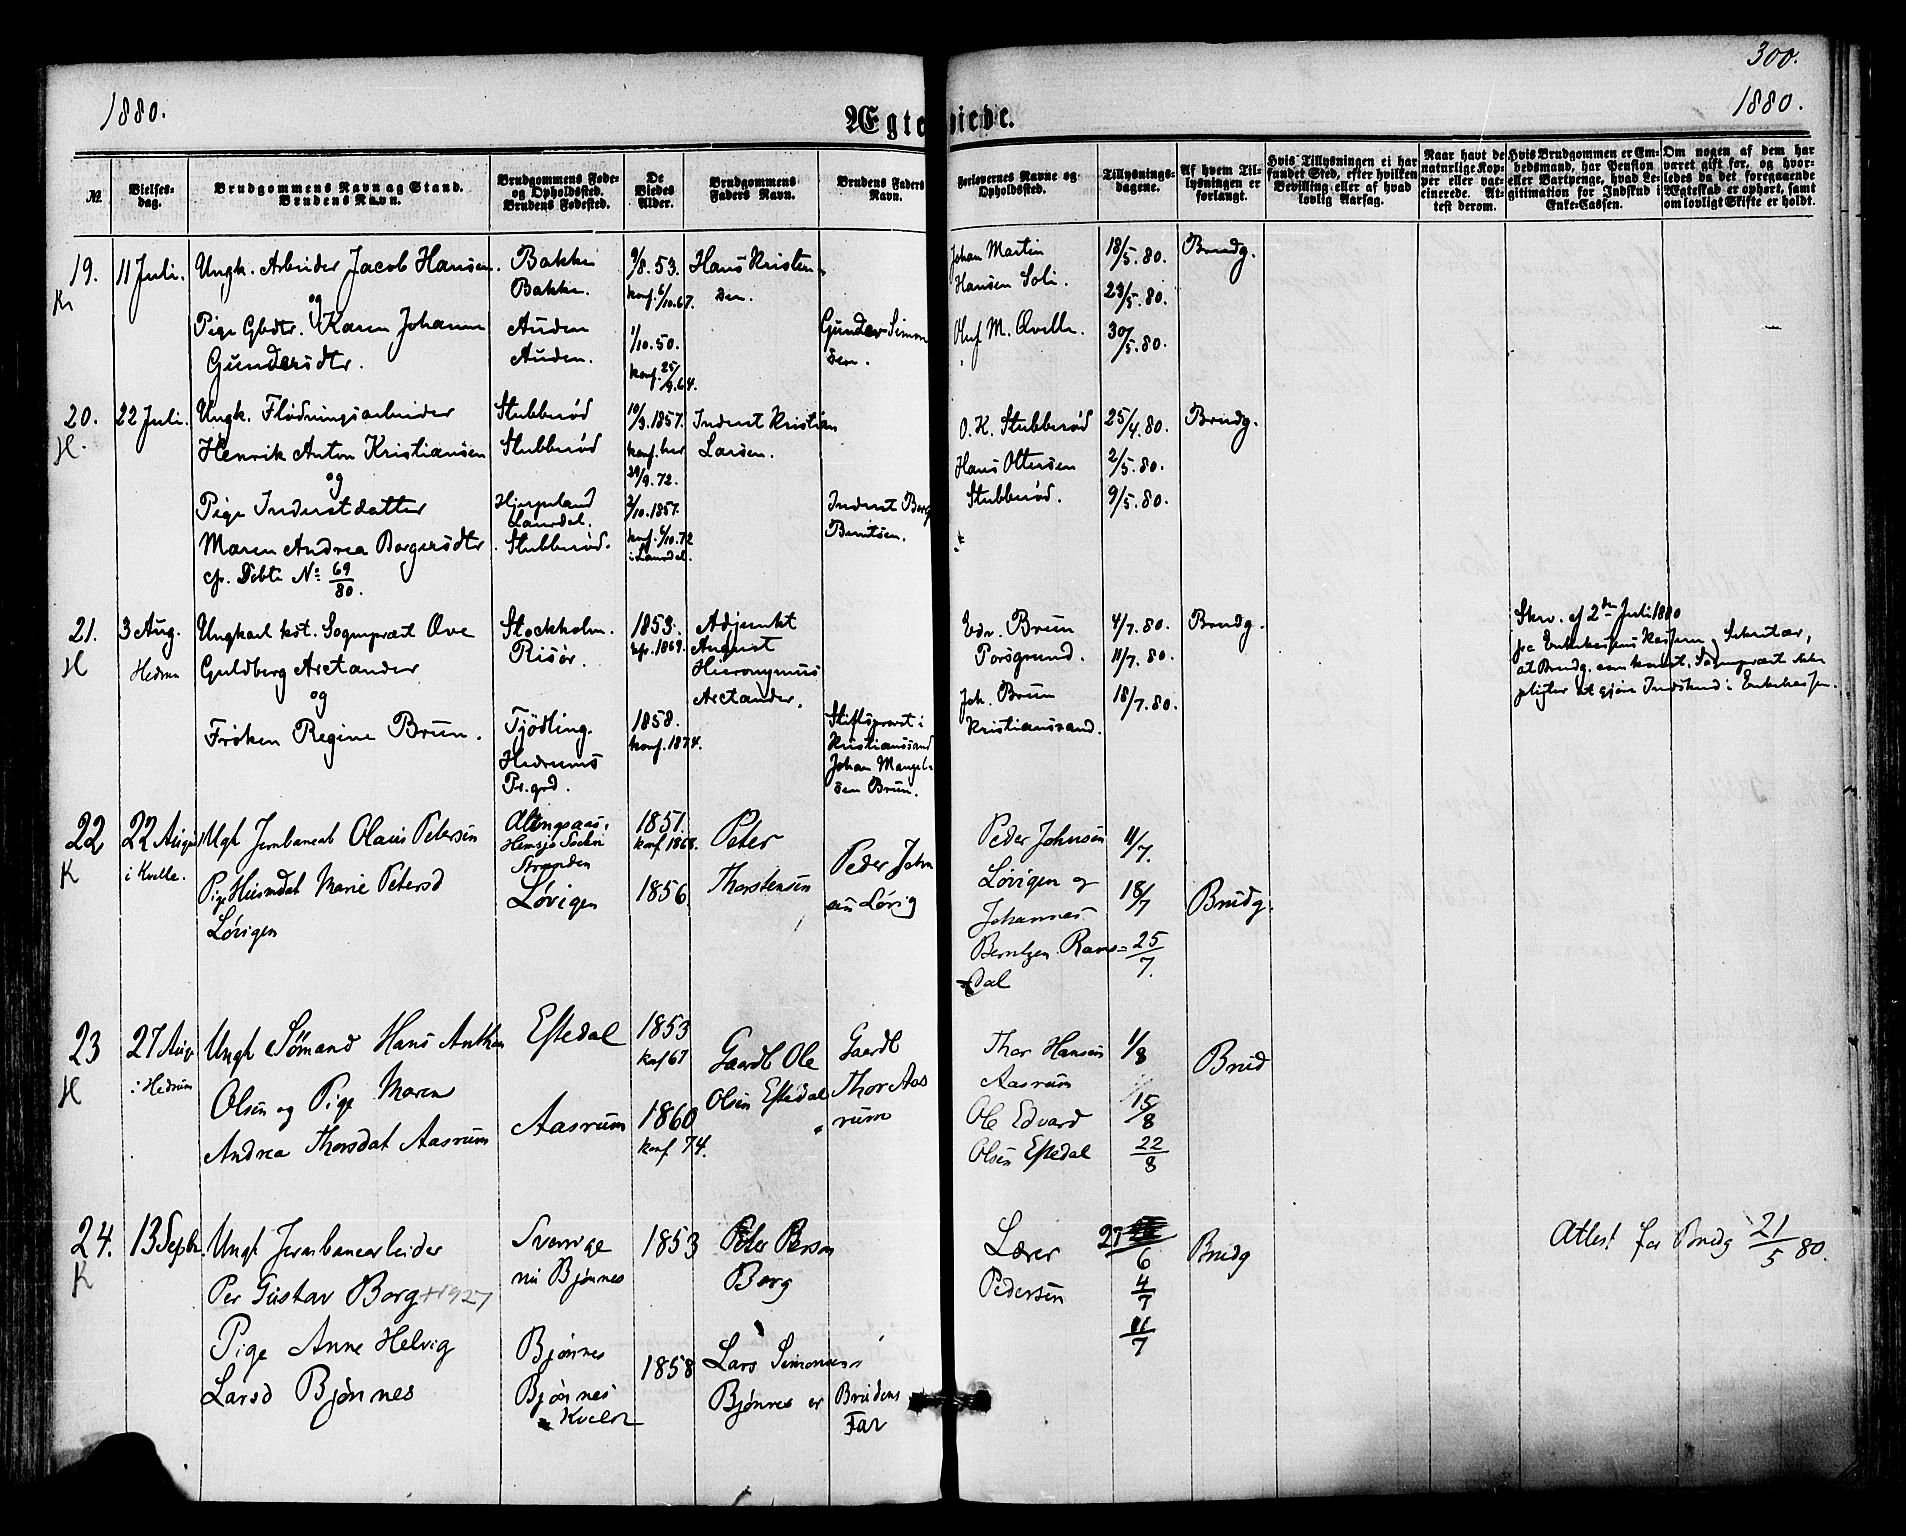 300.
1880.
1880.
Ægteviede.
No.
Vielses-
dag.
Brudgommens Navn og Stand.
Brudens Navn.
Brudgommens Føde-
og Opholdssted.
Brudens Fødested.
De
Viedes
Alder.
Brudgommens
Faders Navn.
Brudens Faders
Navn.
Forlovernes Navne og
Opholdssted.
Tillysnings-
dagene.
Af hvem Til-
lysningen er
forlangt.
Hvis Tillysningen ei har
fundet Sted, efter hvilken
Bevilling eller af hvad
lovlig Aarsag.
Naar havt de
naturlige Kop-
per eller vac-
cinerede. At-
test derom.
Hvis Brudgommen er Em-
bedsmand, har Pension
eller Vartpenge, hvad Le-
gitimation for Indskud i
Enke-Cassen.
Om nogen af dem har
været gift før, og hvor-
ledes da det foregaaende
Ægteskab er ophørt, samt
om lovligt Skifte er holdt.
19.
K
11 Juli.
Ungk. Arbeider Jacob Hansen.
og
Pige Gbdtr. Karen Johanne
Gundersdtr.
Bakke
Bakke.
Auden
Auden.
9/8. 53.
konf. 6/10. 67.
1/10. 50.
konf. 25/9. 64.
Hans Kristen-
sen.
Gunder Simon
sen.
Johan Martin
Hansen Soli.
Oluf M. Qvelle.
18/5. 80.
23/5. 80.
30/5. 80.
Brudg.
20.
H.
22 Juli.
Ungk. Flødningsarbeider
Henrik Anton Kristiansen
og
Pige Inderstdatter
Maren Andrea Borgersdtr
cfr. Døbte No 69/80.
Stubberød
Stubberød
Laurdal.
Stubberød.
10/9. 1857.
konf. her
29/9. 72.
2/10. 1857.
konf. 6/10. 72
i Laurdal.
Inderst Kristian
Larsen.
Inderst Borg
Berntsen.
O. K. Stubberød
Hans Ottersen
Stubberød.
25/4. 80.
2/5. 80.
9/5. 80.
Brudg.
21.
H
3 Aug.
Hedrum
Ungkarl kst. Sognepræst Ove
Guldberg Arctander
og
Frøken Regine Brun.
Stockholm.
Risör.
Tjödling.
Hedrums
Pr.grd.
1853.
1869.
1858.
konf. 1874.
Adjunkt
August
Hieronymus
Arctander.
Stiftsprovst i
Kristianssand
Johan
sen Brun.
Edv. Brun
Porsgrund.
Joh. Brun
Kristianssand.
4/7. 80.
11/7. 80.
18/7. 80.
Brudg.
Skr. af 2den Juli 1880
fra Enkekassens Sekretær,
at Brudg. som konst. Sognepræst ikke
pligter at gjøre Indskud i Enkekassen.
22
K
22 August
i Kvelle.
Ungk Jernbanearb Olaus Petersen
Pige Husmdat Marie Petersd
Løvigen
Alingsaas,
Hemsjø Socken
Løvigen
1851.
konf 1868.
1856
Peter
Thorstensen
Peder John
sen Løvig
Peder Johnsen
Løvigen og
Johannes
Berntzen Rams-
dal
11/7.
18/7
25/7.
Brudg.
23
H
27 Aug
i Hedrum
Ungk Sömand Hans Anthon
Olsen og Pige Maren
Andrea Thorsdat Aasrum
Eftedal
Aasrum
1853
konf 67
1860
konf. 74.
Gaardb Ole
Olsen Eftedal
Gaardb
Thor Aas
rum
Thor Hansen
Aasrum
Ole Edvard
Olsen Eftedal
1/8
15/8
22/8
Brud
24.
K
13 Septbr.
Ungk Jernbanearbeider
Per Gustav Borg +1927
Pige Anne Helvig
Larsd Bjønnes
Sverrige
nu Bjønnes
Bjønnes
Bjønnes
Kvelle
1853
1858
Peter Person
Borg
Lars Simonsen
Bjønnes er
Brudens
Far
Lærer
Pedersen
27/6
4/7
11/7
Brudg
Attest for Brudg 21/5 80.